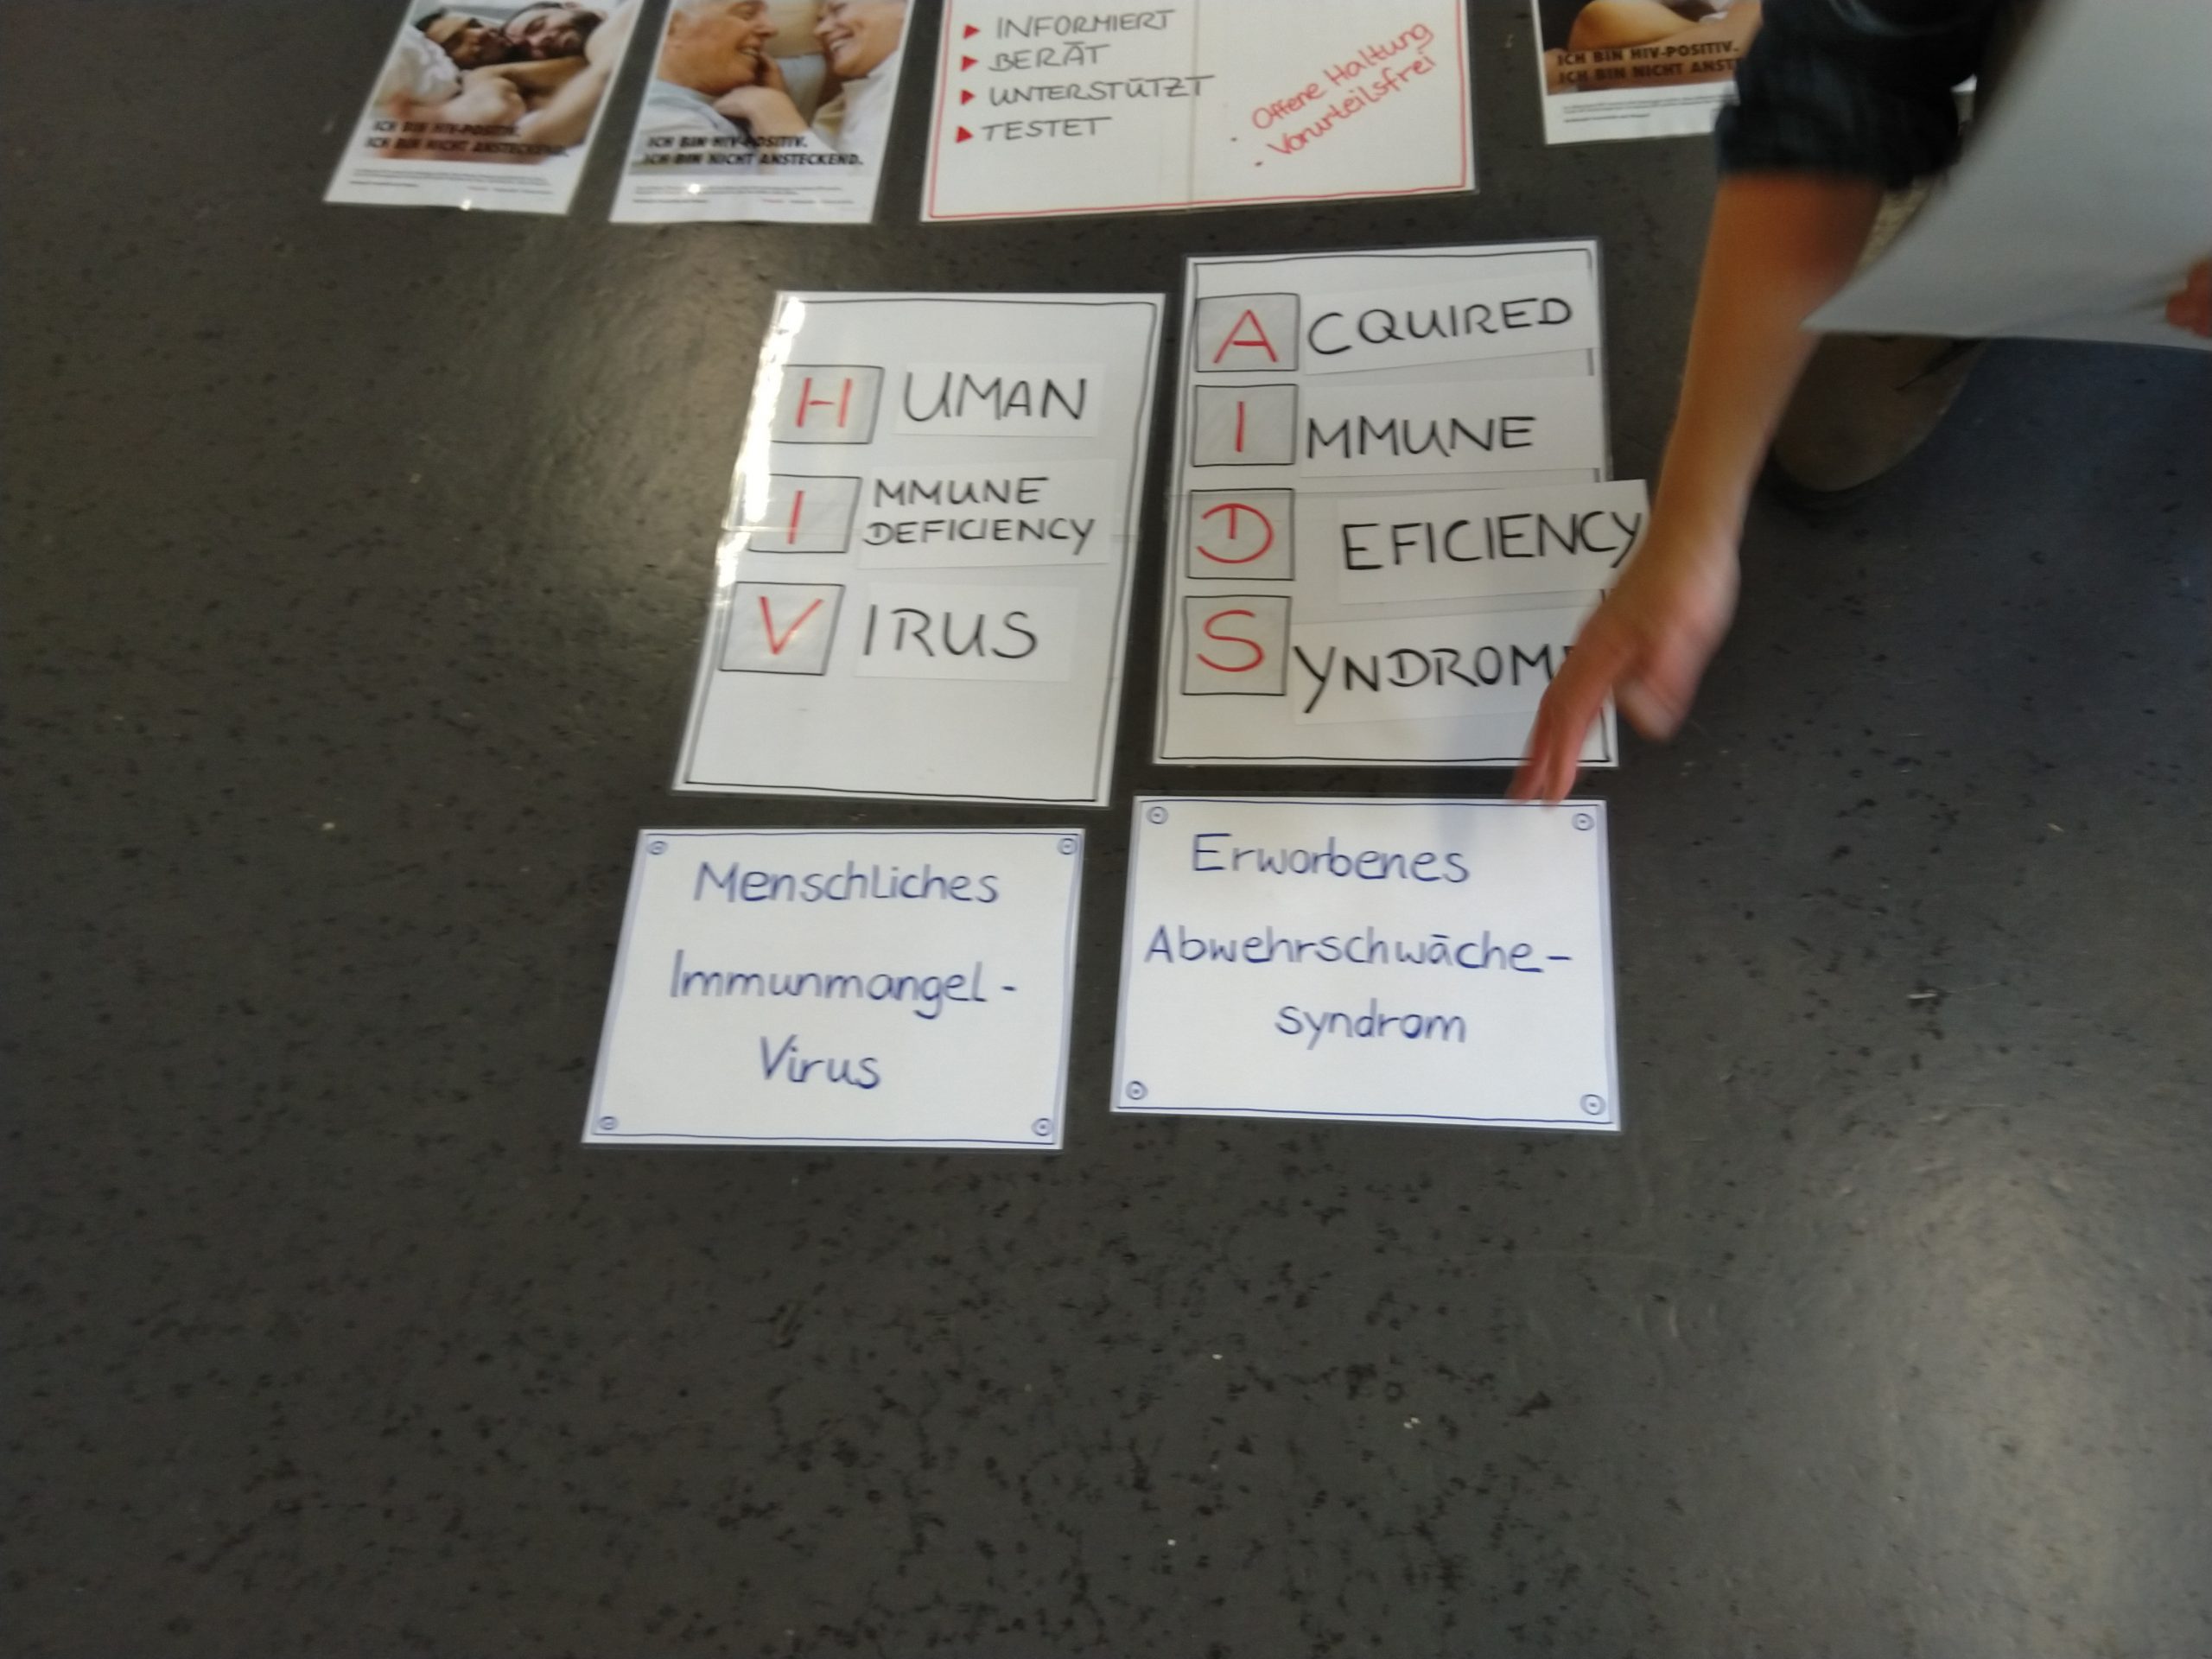 ICH BIN HIV-POSITIV.
ICH BIN NICHT ANSTECKEND.
ICH BIN HIV-POSITIV.
ICH BIN NICHT ANSTECKEND.
INFORMIERT
BERÄT
UNTERSTÜTZT
TESTET
• Offene Haltung
• Vorurteilsfrei
ICH BIN HIV-POSITIV.
ICH BIN NICHT ANST
HUMAN
IMMUNE
DEFICIENCY
VIRUS
ACQUIRED
IMMUNE
DEFICIENCY
SYNDROM
Menschliches
Immunmangel-
Virus
Erworbenes
Abwehrschwäche-
syndrom